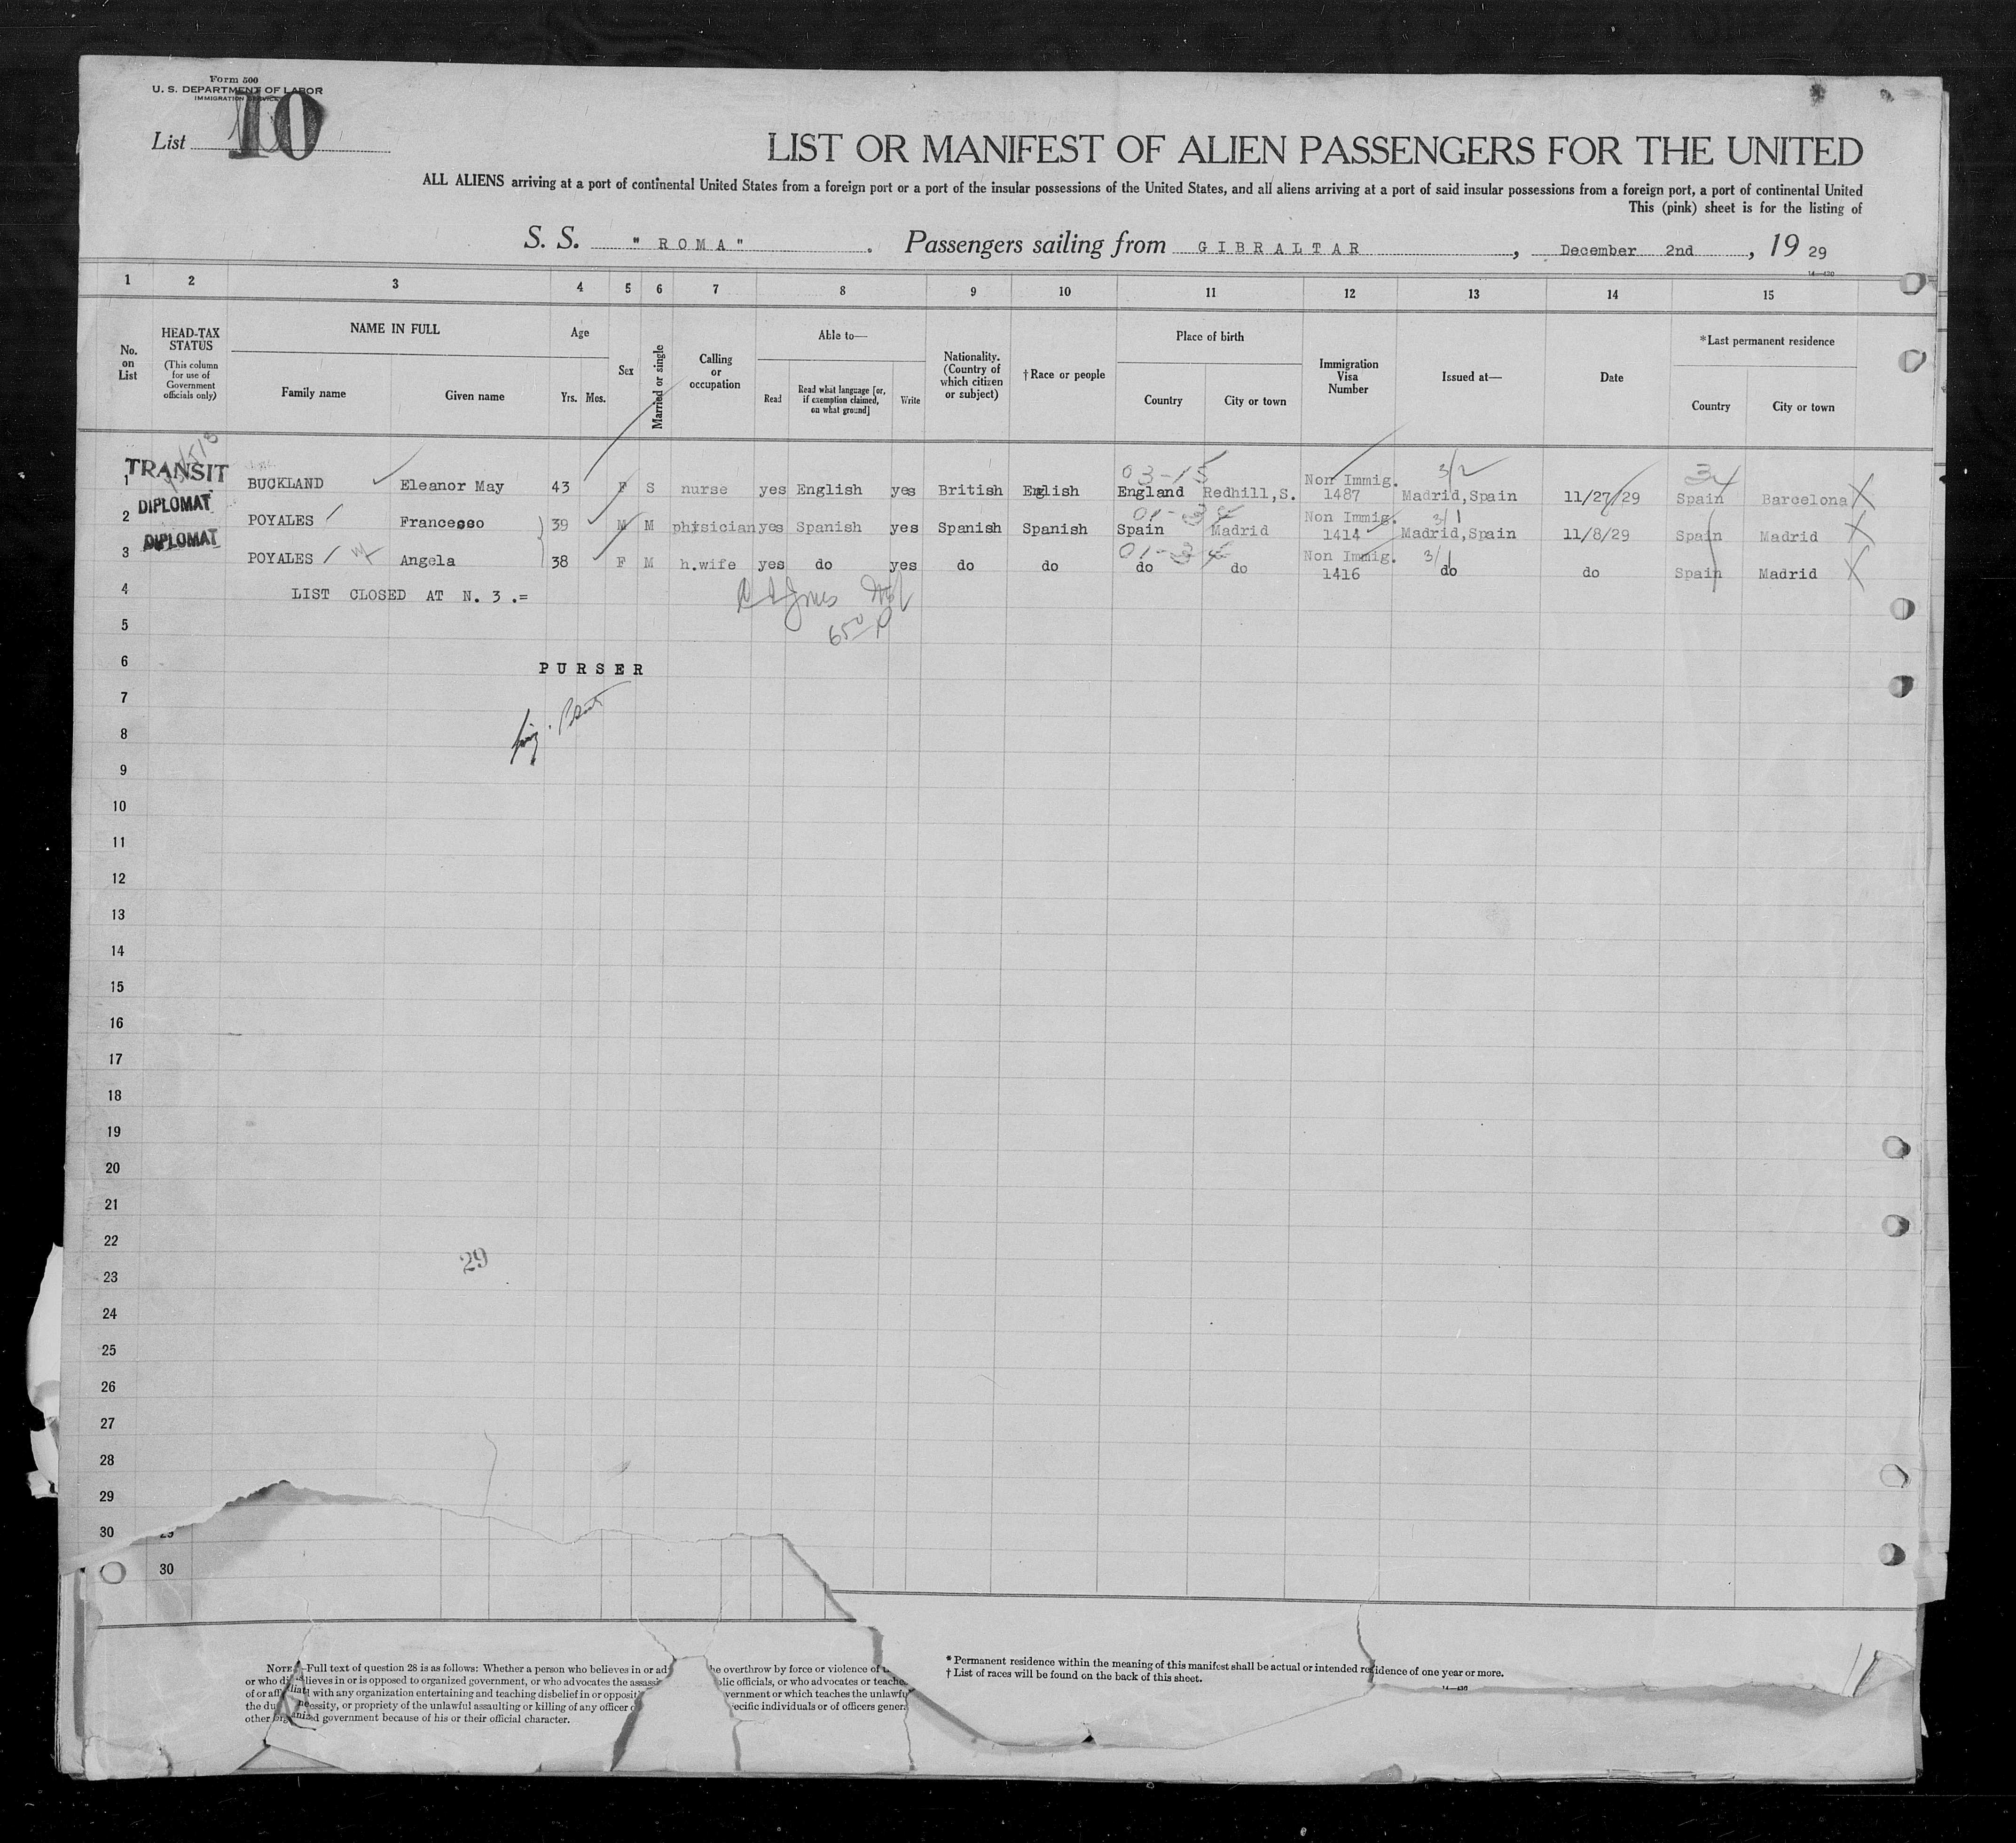 Form 500
U. S. DEPARTMENT OF LABOR
IMMIGRATION SERVICE
List 10
LIST OR MANIFEST OF ALIEN PASSENGERS FOR THE UNITED
ALL ALIENS arriving at a port of continental United States from a foreign port or a port of the insular possessions of the United States, and all aliens arriving at a port of said insular possessions from a foreign port, a port of continental United
This (pink) sheet is for the listing of
S. S. " R O M A " . Passengers sailing from G I B R A L T A R , December 2nd , 19 29
14—430
1 2 3 4 5 6 7 8 9 10 11 12 13 14 15
No. on List
HEAD-TAX STATUS
(This column for use of Government officials only)
NAME IN FULL
Family name Given name
Age
Yrs. Mos.
Sex
Married or single
Calling or occupation
Able to—
Read Read what language [or, if exemption claimed, on what ground] Write
Nationality. (Country of which citizen or subject)
†Race or people
Place of birth
Country City or town
Immigration Visa Number
Issued at—
Date
*Last permanent residence
Country City or town
03-15 3/2 34
1 TRANSIT BUCKLAND Eleanor May 43 F S nurse yes English yes British English England Redhill,S. Non Immig. 1487 Madrid,Spain 11/27/29 Spain Barcelona X
01-34 3/1
2 DIPLOMAT POYALES Francesso 39 M M phisician yes Spanish yes Spanish Spanish Spain Madrid Non Immig. 1414 Madrid,Spain 11/8/29 Spain Madrid X
01-34 3/1
3 DIPLOMAT POYALES Angela 38 F M h.wife yes do yes do do do do Non Immig. 1416 do do Spain Madrid X
4 LIST CLOSED AT N. 3 .=
5
6 P U R S E R
7
8
9
10
11
12
13
14
15
16
17
18
19
20
21
22
29
23
24
25
26
27
28
29
30
29
30
NOTE.—Full text of question 28 is as follows: Whether a person who believes in or ad he overthrow by force or violence of
or who believes in or is opposed to organized government, or who advocates the assassi blic officials, or who advocates or teache
of or with any organization entertaining and teaching disbelief in or opposit vernment or which teaches the unlawfu
the du necessity, or propriety of the unlawful assaulting or killing of any officer o ecific individuals or of officers gener
other organized government because of his or their official character.
* Permanent residence within the meaning of this manifest shall be actual or intended residence of one year or more.
† List of races will be found on the back of this sheet.
14—430